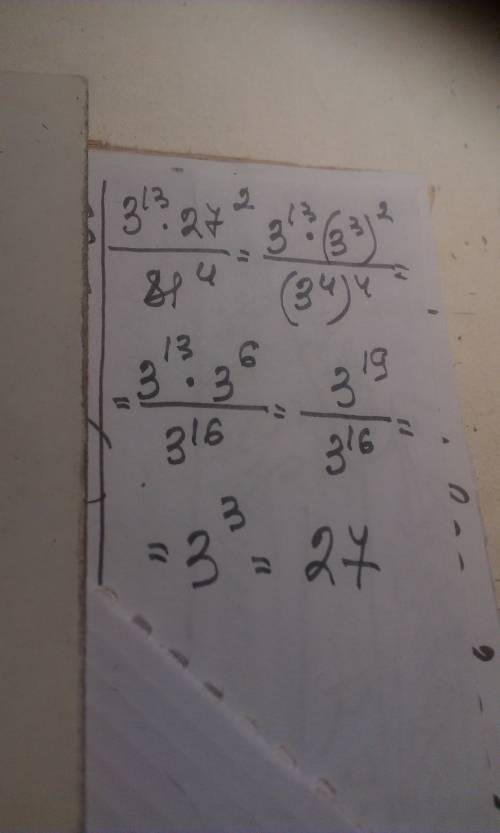 3^13 · 27^2 / 81^4 = 3^13 · (3^3)^2 / (3^4)^4 =
= 3^13 · 3^6 / 3^16 = 3^19 / 3^16 =
= 3^3 = 27